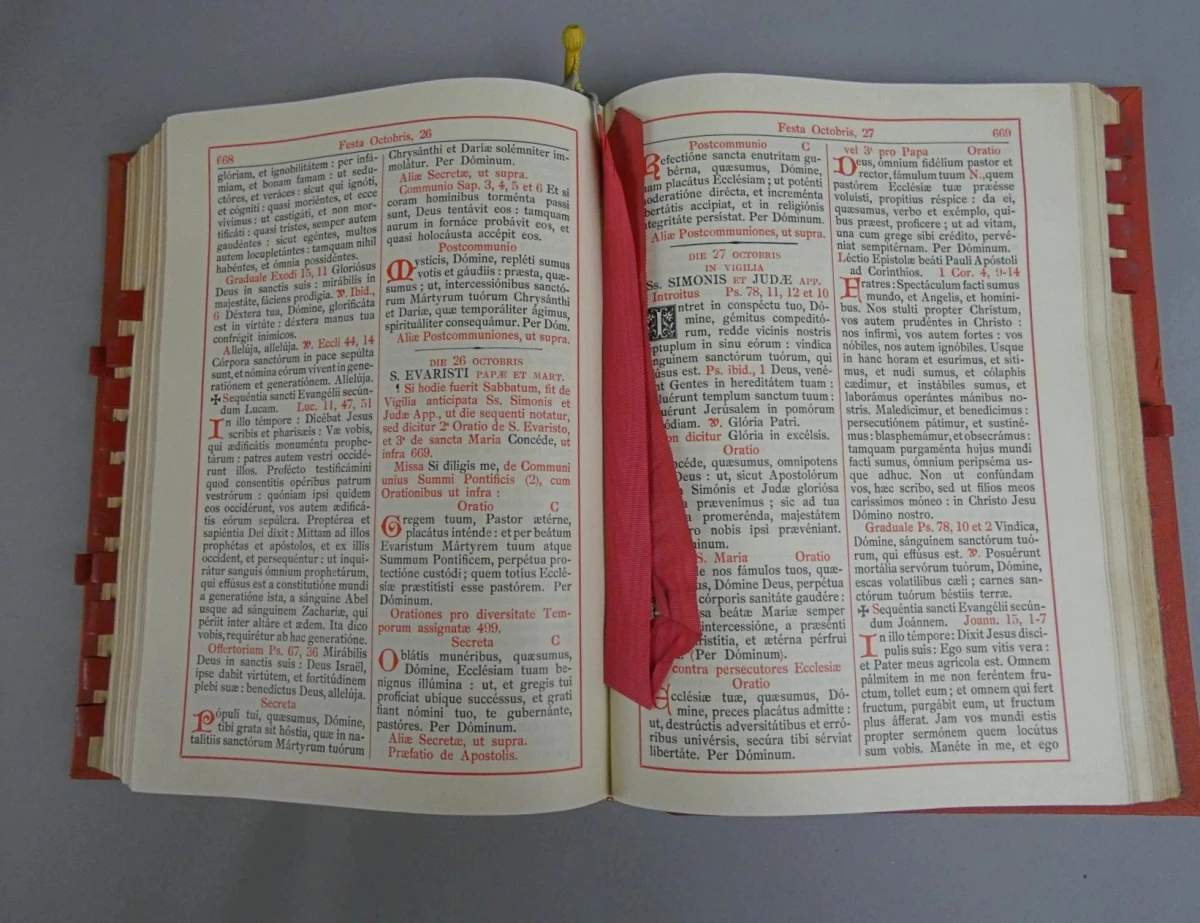 668
Festa Octobris, 26
glóriam, et ignobilitátem : per infá-
miam, et bonam famam : ut sedu-
ctóres, et veráces : sicut qui ignóti,
et cógniti : quasi moriéntes, et ecce
vívimus : ut castigáti, et non mor-
tificáti : quasi tristes, semper autem
gaudéntes : sicut egéntes, multos
autem locupletántes : tamquam nihil
habéntes, et ómnia possidéntes.
Graduale Exodi 15, 11 Gloriósus
Deus in sanctis suis : mirábilis in
majestáte, fáciens prodígia. ℣. Ibid.,
6 Déxtera tua, Dómine, glorificáta
est in virtúte : déxtera manus tua
confrégit inimícos.
Allelúja, allelúja. ℣. Eccli 44, 14
Córpora sanctórum in pace sepúlta
sunt, et nómina eórum vivent in gene-
ratiónem et generatiónem. Allelúja.
✠ Sequéntia sancti Evangélii secún-
dum Lucam. Luc. 11, 47, 51
In illo témpore : Dicébat Jesus
scribis et pharisæis : Væ vobis,
qui ædificátis monuménta prophe-
tárum : patres autem vestri occidé-
runt illos. Profécto testificámini
quod consentítis opéribus patrum
vestrórum : quóniam ipsi quidem
eos occidérunt, vos autem ædificá-
tis eórum sepúlcra. Proptérea et
sapiéntia Dei dixit : Mittam ad illos
prophétas et apóstolos, et ex illis
occident, et persequéntur : ut inqui-
rátur sanguis ómnium prophetárum,
qui effúsus est a constitutióne mundi
a generatióne ista, a sánguine Abel
usque ad sánguinem Zacharíæ, qui
périit inter altáre et ædem. Ita dico
vobis, requirétur ab hac generatióne.
Offertorium Ps. 67, 36 Mirábilis
Deus in sanctis suis : Deus Israël,
ipse dabit virtútem, et fortitúdinem
plebi suæ : benedíctus Deus, allelúja.
Secreta
Pópuli tui, quæsumus, Dómine,
tibi grata sit hóstia, quæ in na-
talítiis sanctórum Mártyrum tuórum
Chrysánthi et Daríæ solémniter im-
molátur. Per Dóminum.
Aliæ Secretæ, ut supra.
Communio Sap. 3, 4, 5 et 6 Et si
coram homínibus torménta passi
sunt, Deus tentávit eos : tamquam
aurum in fornáce probávit eos, et
quasi holocáusta accépit eos.
Postcommunio
Mysticis, Dómine, repléti sumus
votis et gáudiis : præsta, quæ-
sumus ; ut, intercessiónibus sanctó-
rum Mártyrum tuórum Chrysánthi
et Daríæ, quæ temporáliter ágimus,
spirituáliter consequámur. Per Dóm.
Aliæ Postcommuniones, ut supra.
DIE 26 OCTOBRIS
S. EVARISTI PAPÆ ET MART.
¶ Si hodie fuerit Sabbatum, fit de
Vigilia anticipata Ss. Simonis et
Judæ App., ut die sequenti notatur,
sed dicitur 2ª Oratio de S. Evaristo,
et 3ª de sancta Maria Concéde, ut
infra 669.
Missa Si díligis me, de Communi
unius Summi Pontificis (2), cum
Orationibus ut infra :
Oratio C
Gregem tuum, Pastor ætérne,
placátus inténde : et per beátum
Evarístum Mártyrem tuum atque
Summum Pontíficem, perpétua pro-
tectióne custódi ; quem totíus Ecclé-
siæ præstitísti esse pastórem. Per
Dóminum.
Orationes pro diversitate Tem-
porum assignatæ 499.
Secreta C
Oblátis munéribus, quæsumus,
Dómine, Ecclésiam tuam be-
nígnus illúmina : ut, et gregis tui
profíciat ubíque succéssus, et grati
fiant nómini tuo, te gubernánte,
pastóres. Per Dóminum.
Aliæ Secretæ, ut supra.
Præfatio de Apostolis.
Festa Octobris, 27
669
Postcommunio C
Refectióne sancta enutrítam gu-
bérna, quæsumus, Dómine,
tuam placátus Ecclésiam ; ut poténti
moderatióne dirécta, et increménta
libertátis accípiat, et in religiónis
integritáte persístat. Per Dóminum.
Aliæ Postcommuniones, ut supra.
DIE 27 OCTOBRIS
IN VIGILIA
Ss. SIMONIS ET JUDÆ APP.
Introitus Ps. 78, 11, 12 et 10
Intret in conspéctu tuo, Dó-
mine, gémitus compeditó-
rum, redde vicínis nostris
ptuplum in sinu eórum : víndica
nguinem sanctórum tuórum, qui
úsus est. Ps. ibid., 1 Deus, vené-
nt Gentes in hereditátem tuam :
luérunt templum sanctum tuum :
uérunt Jerúsalem in pomórum
ódiam. ℣. Glória Patri.
on dicitur Glória in excélsis.
Oratio
ncéde, quæsumus, omnípotens
Deus : ut, sicut Apostolórum
Simónis et Judæ gloriósa
prævenímus ; sic ad tua
promerénda, majestátem
ro nobis ipsi prævéniant.
minum.
S. Maria Oratio
de nos fámulos tuos, quæ-
us, Dómine Deus, perpétua
córporis sanitáte gaudére :
sa beátæ Maríæ semper
intercessióne, a præsénti
ristítia, et ætérna pérfrui
(Per Dóminum).
contra persecutores Ecclesiæ
Oratio
Ecclésiæ tuæ, quæsumus, Dó-
mine, preces placátus admítte :
ut, destrúctis adversitátibus et erró-
ribus univérsis, secúra tibi sérviat
libertáte. Per Dóminum.
vel 3ª pro Papa Oratio
Deus, ómnium fidélium pastor et
rector, fámulum tuum N., quem
pastórem Ecclésiæ tuæ præésse
voluísti, propítius réspice : da ei,
quæsumus, verbo et exémplo, qui-
bus præest, profícere ; ut ad vitam,
una cum grege sibi crédito, pervé-
niat sempitérnam. Per Dóminum.
Léctio Epístolæ beáti Pauli Apóstoli
ad Corínthios. 1 Cor. 4, 9-14
Fratres : Spectáculum facti sumus
mundo, et Angelis, et homíni-
bus. Nos stulti propter Christum,
vos autem prudéntes in Christo :
nos infírmi, vos autem fortes : vos
nóbiles, nos autem ignóbiles. Usque
in hanc horam et esurímus, et sití-
mus, et nudi sumus, et cólaphis
cædimur, et instábiles sumus, et
laborámus operántes mánibus no-
stris. Maledícimur, et benedícimus :
persecutiónem pátimur, et sustiné-
mus : blasphemámur, et obsecrámus :
tamquam purgaménta hujus mundi
facti sumus, ómnium peripséma us-
que adhuc. Non ut confúndam
vos, hæc scribo, sed ut fílios meos
caríssimos móneo : in Christo Jesu
Dómino nostro.
Graduale Ps. 78, 10 et 2 Víndica,
Dómine, sánguinem sanctórum tuó-
rum, qui effúsus est. ℣. Posuérunt
mortália servórum tuórum, Dómine,
escas volatílibus cæli ; carnes san-
ctórum tuórum béstiis terræ.
✠ Sequéntia sancti Evangélii secún-
dum Joánnem. Joann. 15, 1-7
In illo témpore : Dixit Jesus discí-
pulis suis : Ego sum vitis vera :
et Pater meus agrícola est. Omnem
pálmitem in me non feréntem fru-
ctum, tollet eum ; et omnem qui fert
fructum, purgábit eum, ut fructum
plus áfferat. Jam vos mundi estis
propter sermónem quem locútus
sum vobis. Manéte in me, et ego